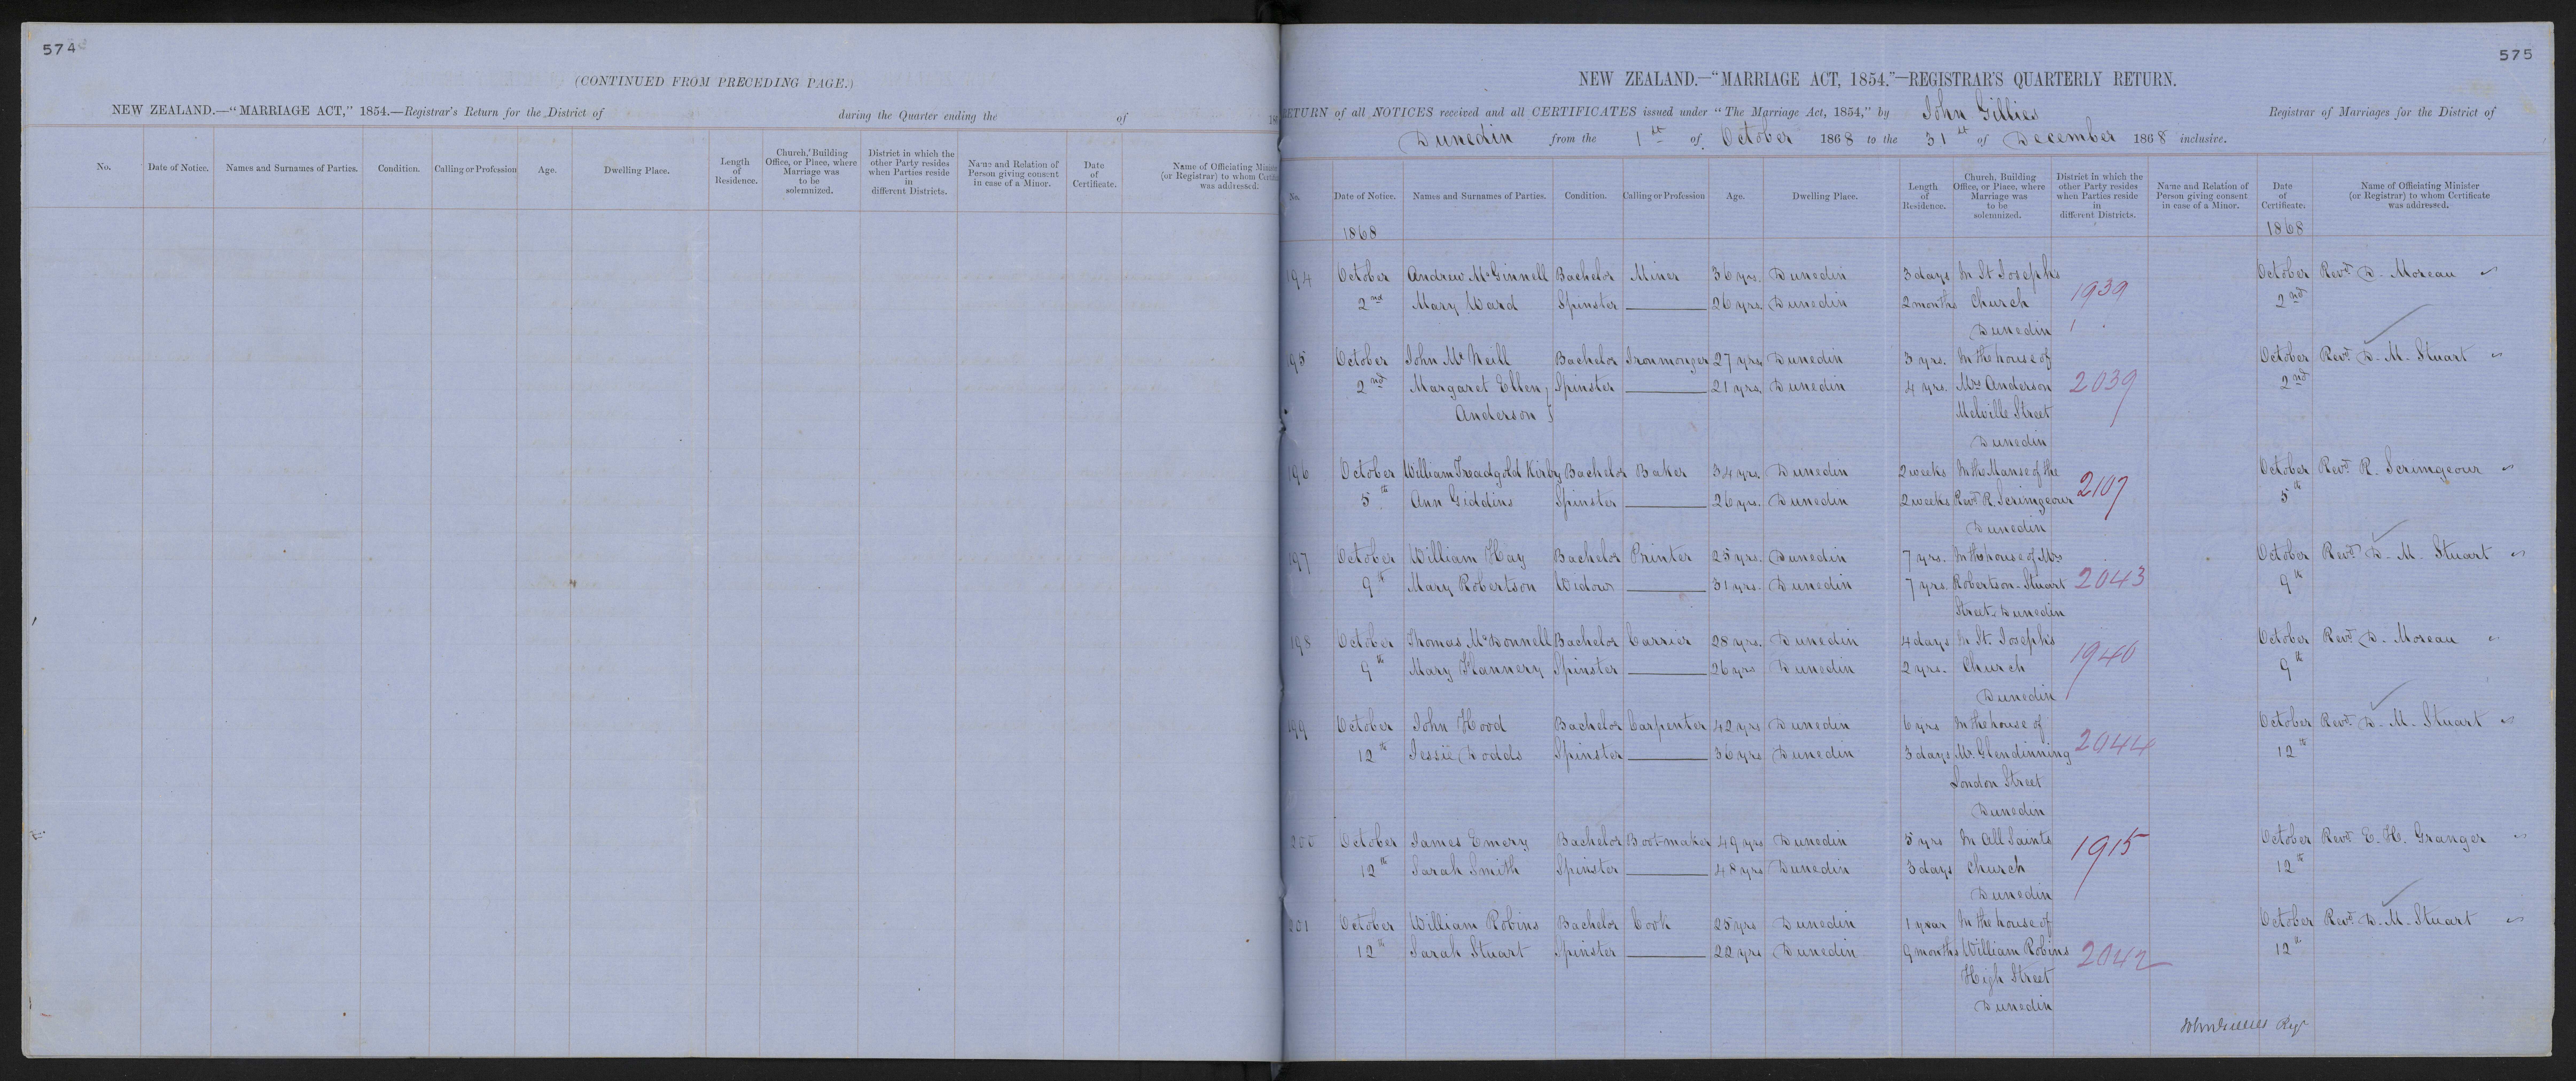 574
(CONTINUED FROM PRECEDING PAGE.)
NEW ZEALAND.—"MARRIAGE ACT," 1854.—Registrar's Return for the District of during the Quarter ending the of 186
No. Date of Notice. Names and Surnames of Parties. Condition. Calling or Profession Age. Dwelling Place. Length of Residence. Church, Building Office, or Place, where Marriage was to be solemnized. District in which the other Party resides when Parties reside in different Districts. Name and Relation of Person giving consent in case of a Minor. Date of Certificate. Name of Officiating Minister (or Registrar) to whom Certificate was addressed.
575
NEW ZEALAND.—"MARRIAGE ACT, 1854."—REGISTRAR'S QUARTERLY RETURN.
RETURN of all NOTICES received and all CERTIFICATES issued under "The Marriage Act, 1854," by John Gillies Registrar of Marriages for the District of
Dunedin from the 1st of October 1868 to the 31st of December 1868 inclusive.
No. Date of Notice. Names and Surnames of Parties. Condition. Calling or Profession Age. Dwelling Place. Length of Residence. Church, Building Office, or Place, where Marriage was to be solemnized. District in which the other Party resides when Parties reside in different Districts. Name and Relation of Person giving consent in case of a Minor. Date of Certificate. Name of Officiating Minister (or Registrar) to whom Certificate was addressed.
1868 1868
194 October Andrew McGinnell Bachelor Miner 36 yrs. Dunedin 3 days In St Josephs 1939 October Revd D. Moreau
2nd Mary Ward Spinster 26 yrs. Dunedin 2 months Church 2nd
Dunedin
195 October John McNeill Bachelor Ironmonger 27 yrs Dunedin 3 yrs. In the house of October Revd D. M. Stuart
2nd Margaret Ellen Spinster 21 yrs. Dunedin 4 yrs. Mrs Anderson 2039 2nd
Anderson Melville Street
Dunedin
196 October William Treadgold Kirby Bachelor Baker 34 yrs. Dunedin 2 weeks In the Manse of the 2107 October Revd R. Scrimgeour
5th Ann Giddins Spinster 26 yrs. Dunedin 2 weeks Revd R. Scrimgeour 5th
Dunedin
197 October William Hay Bachelor Printer 25 yrs. Dunedin 7 yrs. In the house of Mrs October Revd D. M. Stuart
9th Mary Robertson Widow 31 yrs. Dunedin 7 yrs. Robertson. Stuart 2043 9th
Street. Dunedin
198 October Thomas McDonnell Bachelor Carrier 28 yrs. Dunedin 4 days In St. Josephs 1940 October Revd D. Moreau
9th Mary Flannery Spinster 26 yrs Dunedin 2 yrs. Church 9th
Dunedin
199 October John Hood Bachelor Carpenter 42 yrs Dunedin 6 yrs In the house of October Revd D. M. Stuart
12th Jessie Dodds Spinster 36 yrs Dunedin 3 days Mr. Glendinning 2044 12th
London Street
Dunedin
200 October James Emery Bachelor Boot-maker 49 yrs Dunedin 5 yrs In All Saints 1915 October Revd E. H. Granger
12th Sarah Smith Spinster 48 yrs Dunedin 3 days Church 12th
Dunedin
201 October William Robins Bachelor Cook 25 yrs Dunedin 1 year In the house of October Revd D. M. Stuart
12th Sarah Stuart Spinster 22 yrs Dunedin 9 months William Robins 2042 12th
High Street
Dunedin
John Gillies Regr